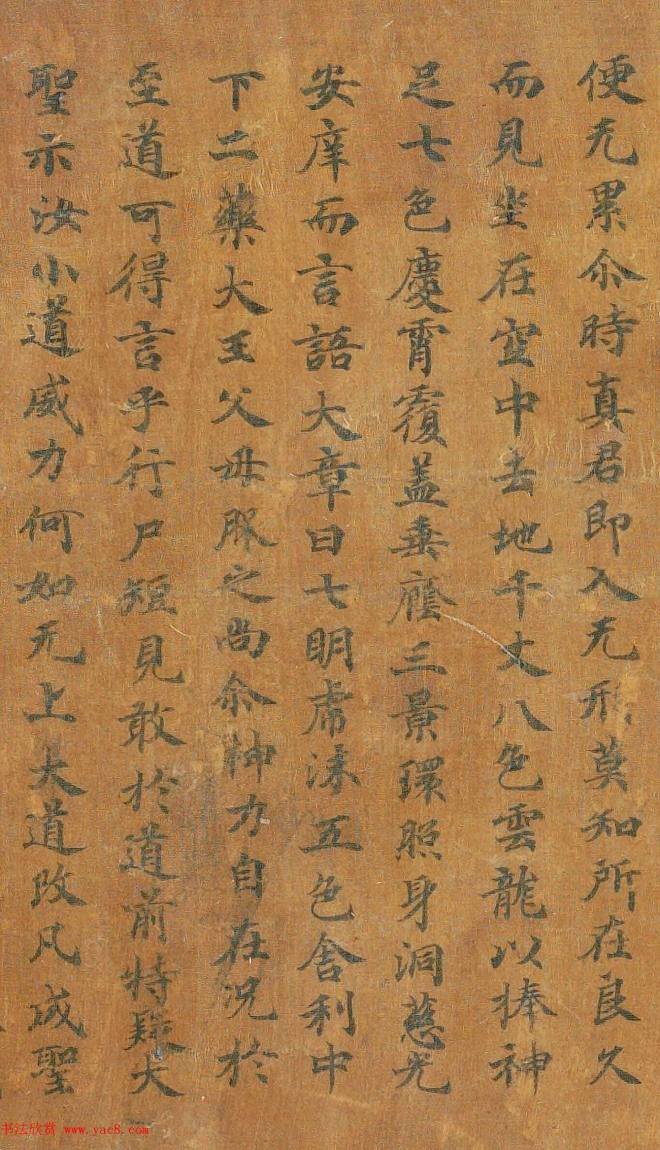 便无累尒時真君即入无形莫知所在良久
而見坐在空中去地千丈八色雲龍以捧神
足七色慶霄覆蓋垂廕三景環照身洞慈光
安庠而言語大章曰七明虎沫五色舍利中
下二藥大王父母服之尚尒神力自在况於
至道可得言乎行尸短見敢於道前特疑大
聖示汝小道威力何如无上大道改凡成聖
书法欣赏 www.yac8.com